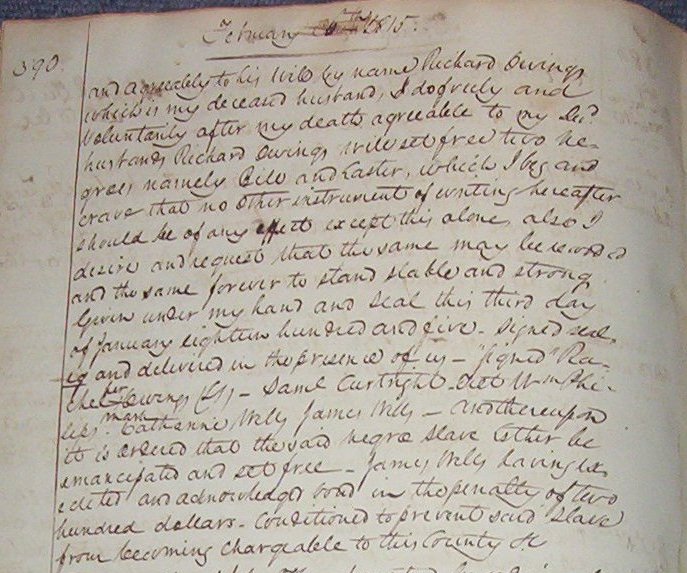 February 20th 1815.
390.
and agreeably to his Will by name Richard Owings
which is my deceasd husband, I do freely and
Voluntarily after my death agreeable to my Decd
husbands Richard Owings will set free two ne-
groes namely Bill and Easter, which I beg and
crave that no other instrument of writing hereafter
should be of any effect except this alone, also I
desire and request that the same may be record d
and the same forever to stand stable and strong.
Given under my hand and seal this third day
of January eighteen hundred and five. Signed seal-
ed and delivered in the presence of us - "Signed" Ra-
chel her Owings (LS) - Saml Curtright Att Wm Phi-
lips mark Catharine Wells James Wells - and thereupon
it is ordered that the said negroe slave Esther be
emancipated and set free - James Wells having ex
ecuted and acknowledged bond in the penalty of two
hundred dollars - Conditioned to prevent said slave
from becoming chargeable to this County &c